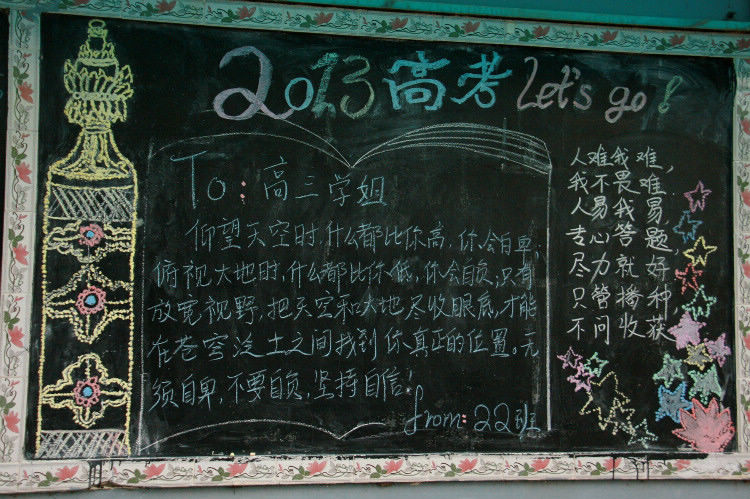 2013高考 Let's go!
To: 高三学姐
仰望天空时,什么都比你高,你会自卑;
俯视大地时,什么都比你低,你会自负;只有
放宽视野,把天空和大地尽收眼底,才能
在苍穹泛土之间找到你真正的位置。无
须自卑,不要自负,坚持自信!
from: 22班
人难我难,
我不畏难.
人易我易,
专心答题
尽力就好
只管播种
不问收获